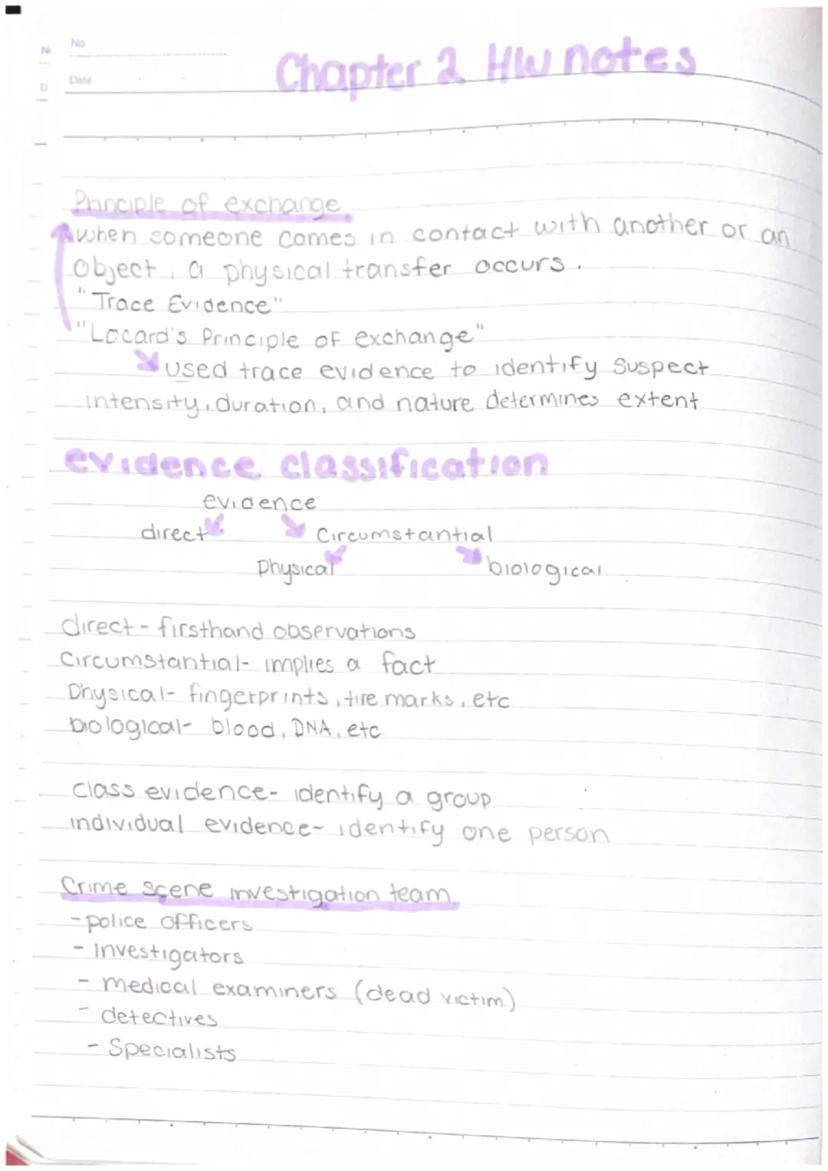 No
Date
Chapter 2 HW notes
Principle of exchange
when someone comes in contact with another or an
object, a physical transfer occurs.
"Trace Evidence"
"Locard's Principle of exchange"
used trace evidence to identify suspect
intensity, duration, and nature determines extent
evidence classification
evidence
direct Circumstantial
Physical biological
direct - firsthand observations
Circumstantial- implies a fact
Physical- fingerprints, tire marks, etc
biological- blood, DNA, etc
class evidence- identify a group
individual evidence- identify one person
Crime scene investigation team
- police officers
- investigators
- medical examiners (dead victim)
- detectives
- Specialists